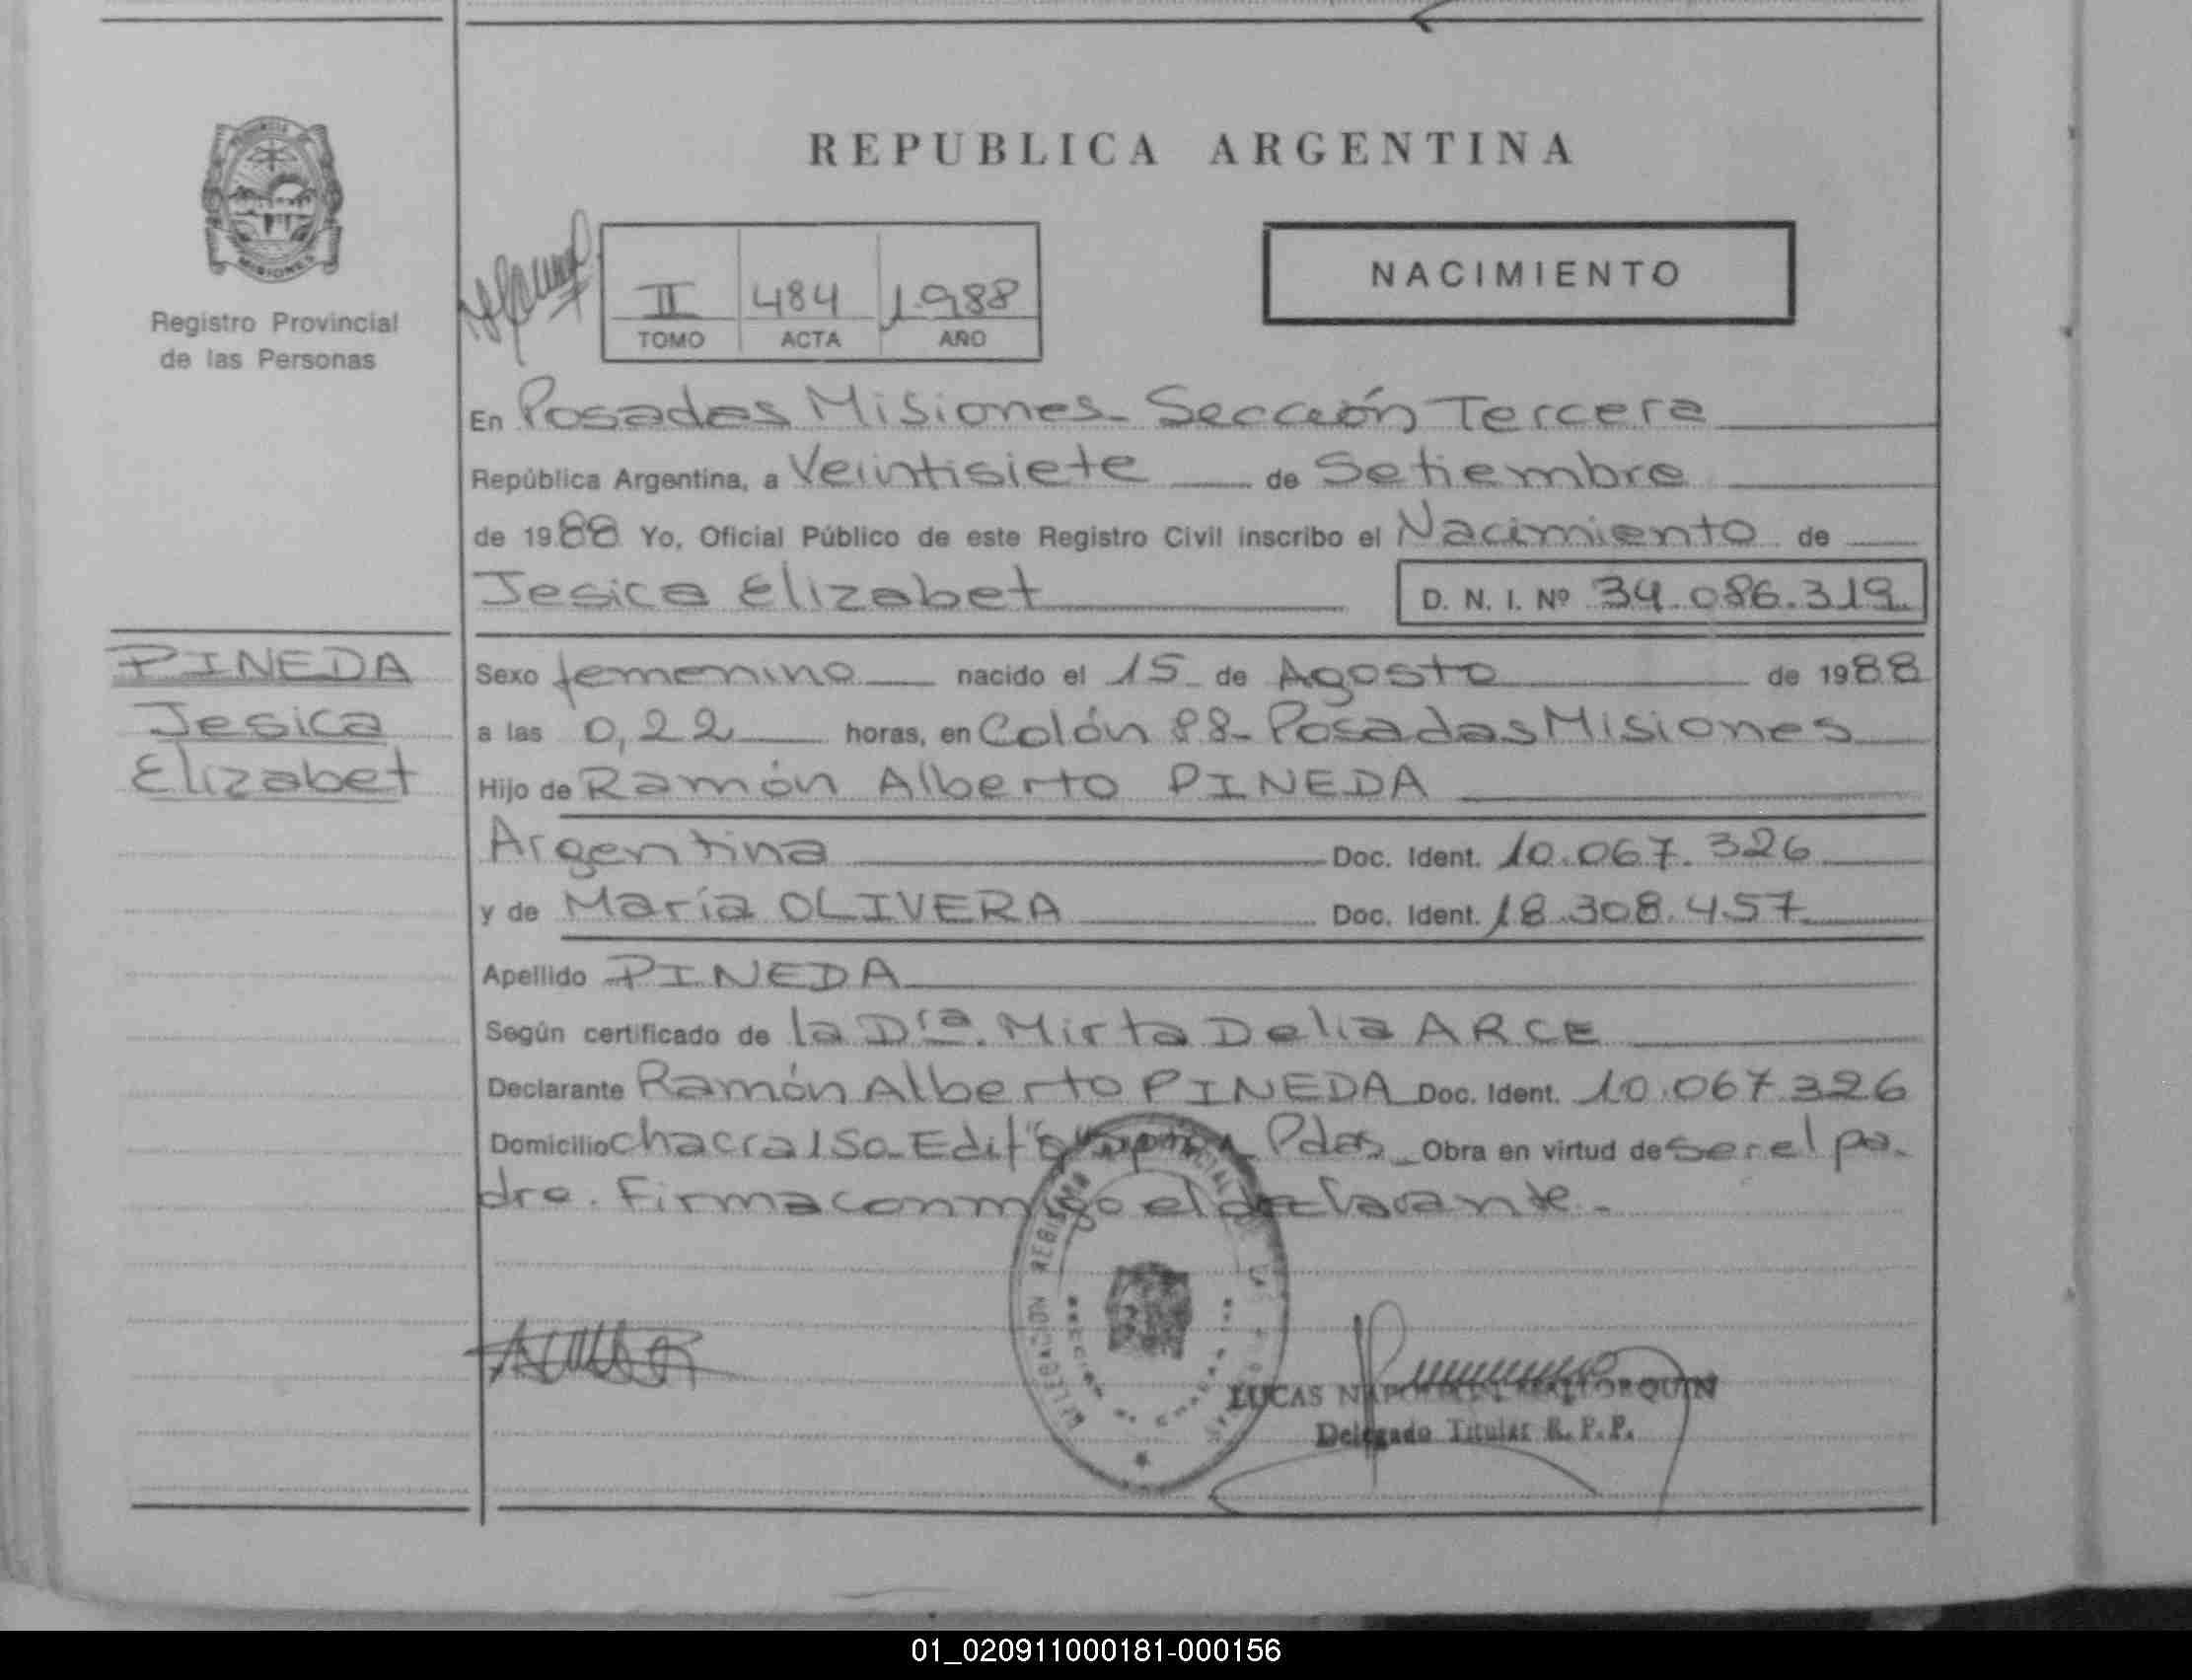 REPUBLICA ARGENTINA
MISIONES
Registro Provincial
de las Personas
II 484 1988
TOMO ACTA AÑO
NACIMIENTO
En Posadas Misiones - Sección Tercera
República Argentina, a Veintisiete de Setiembre
de 1988 Yo, Oficial Público de este Registro Civil inscribo el Nacimiento de
Jesica Elizabet D. N. I. Nº 34.086.319
PINEDA
Jesica
Elizabet
Sexo femenino nacido el 15 de Agosto de 1988
a las 0,22 horas, en Colón 88 - Posadas Misiones
Hijo de Ramón Alberto PINEDA
Argentina Doc. Ident. 10.067.326
y de María OLIVERA Doc. Ident. 18.308.457
Apellido PINEDA
Según certificado de la Dra. Mirta Delia ARCE
Declarante Ramón Alberto PINEDA Doc. Ident. 10.067.326
Domicilio chacra 150 - Edif Pdas - Obra en virtud de ser el pa-
dre. Firma conmigo el declarante.-
DELEGACION REGISTRO
LUCAS
Delegado Titular R. P. P.
01_020911000181-000156